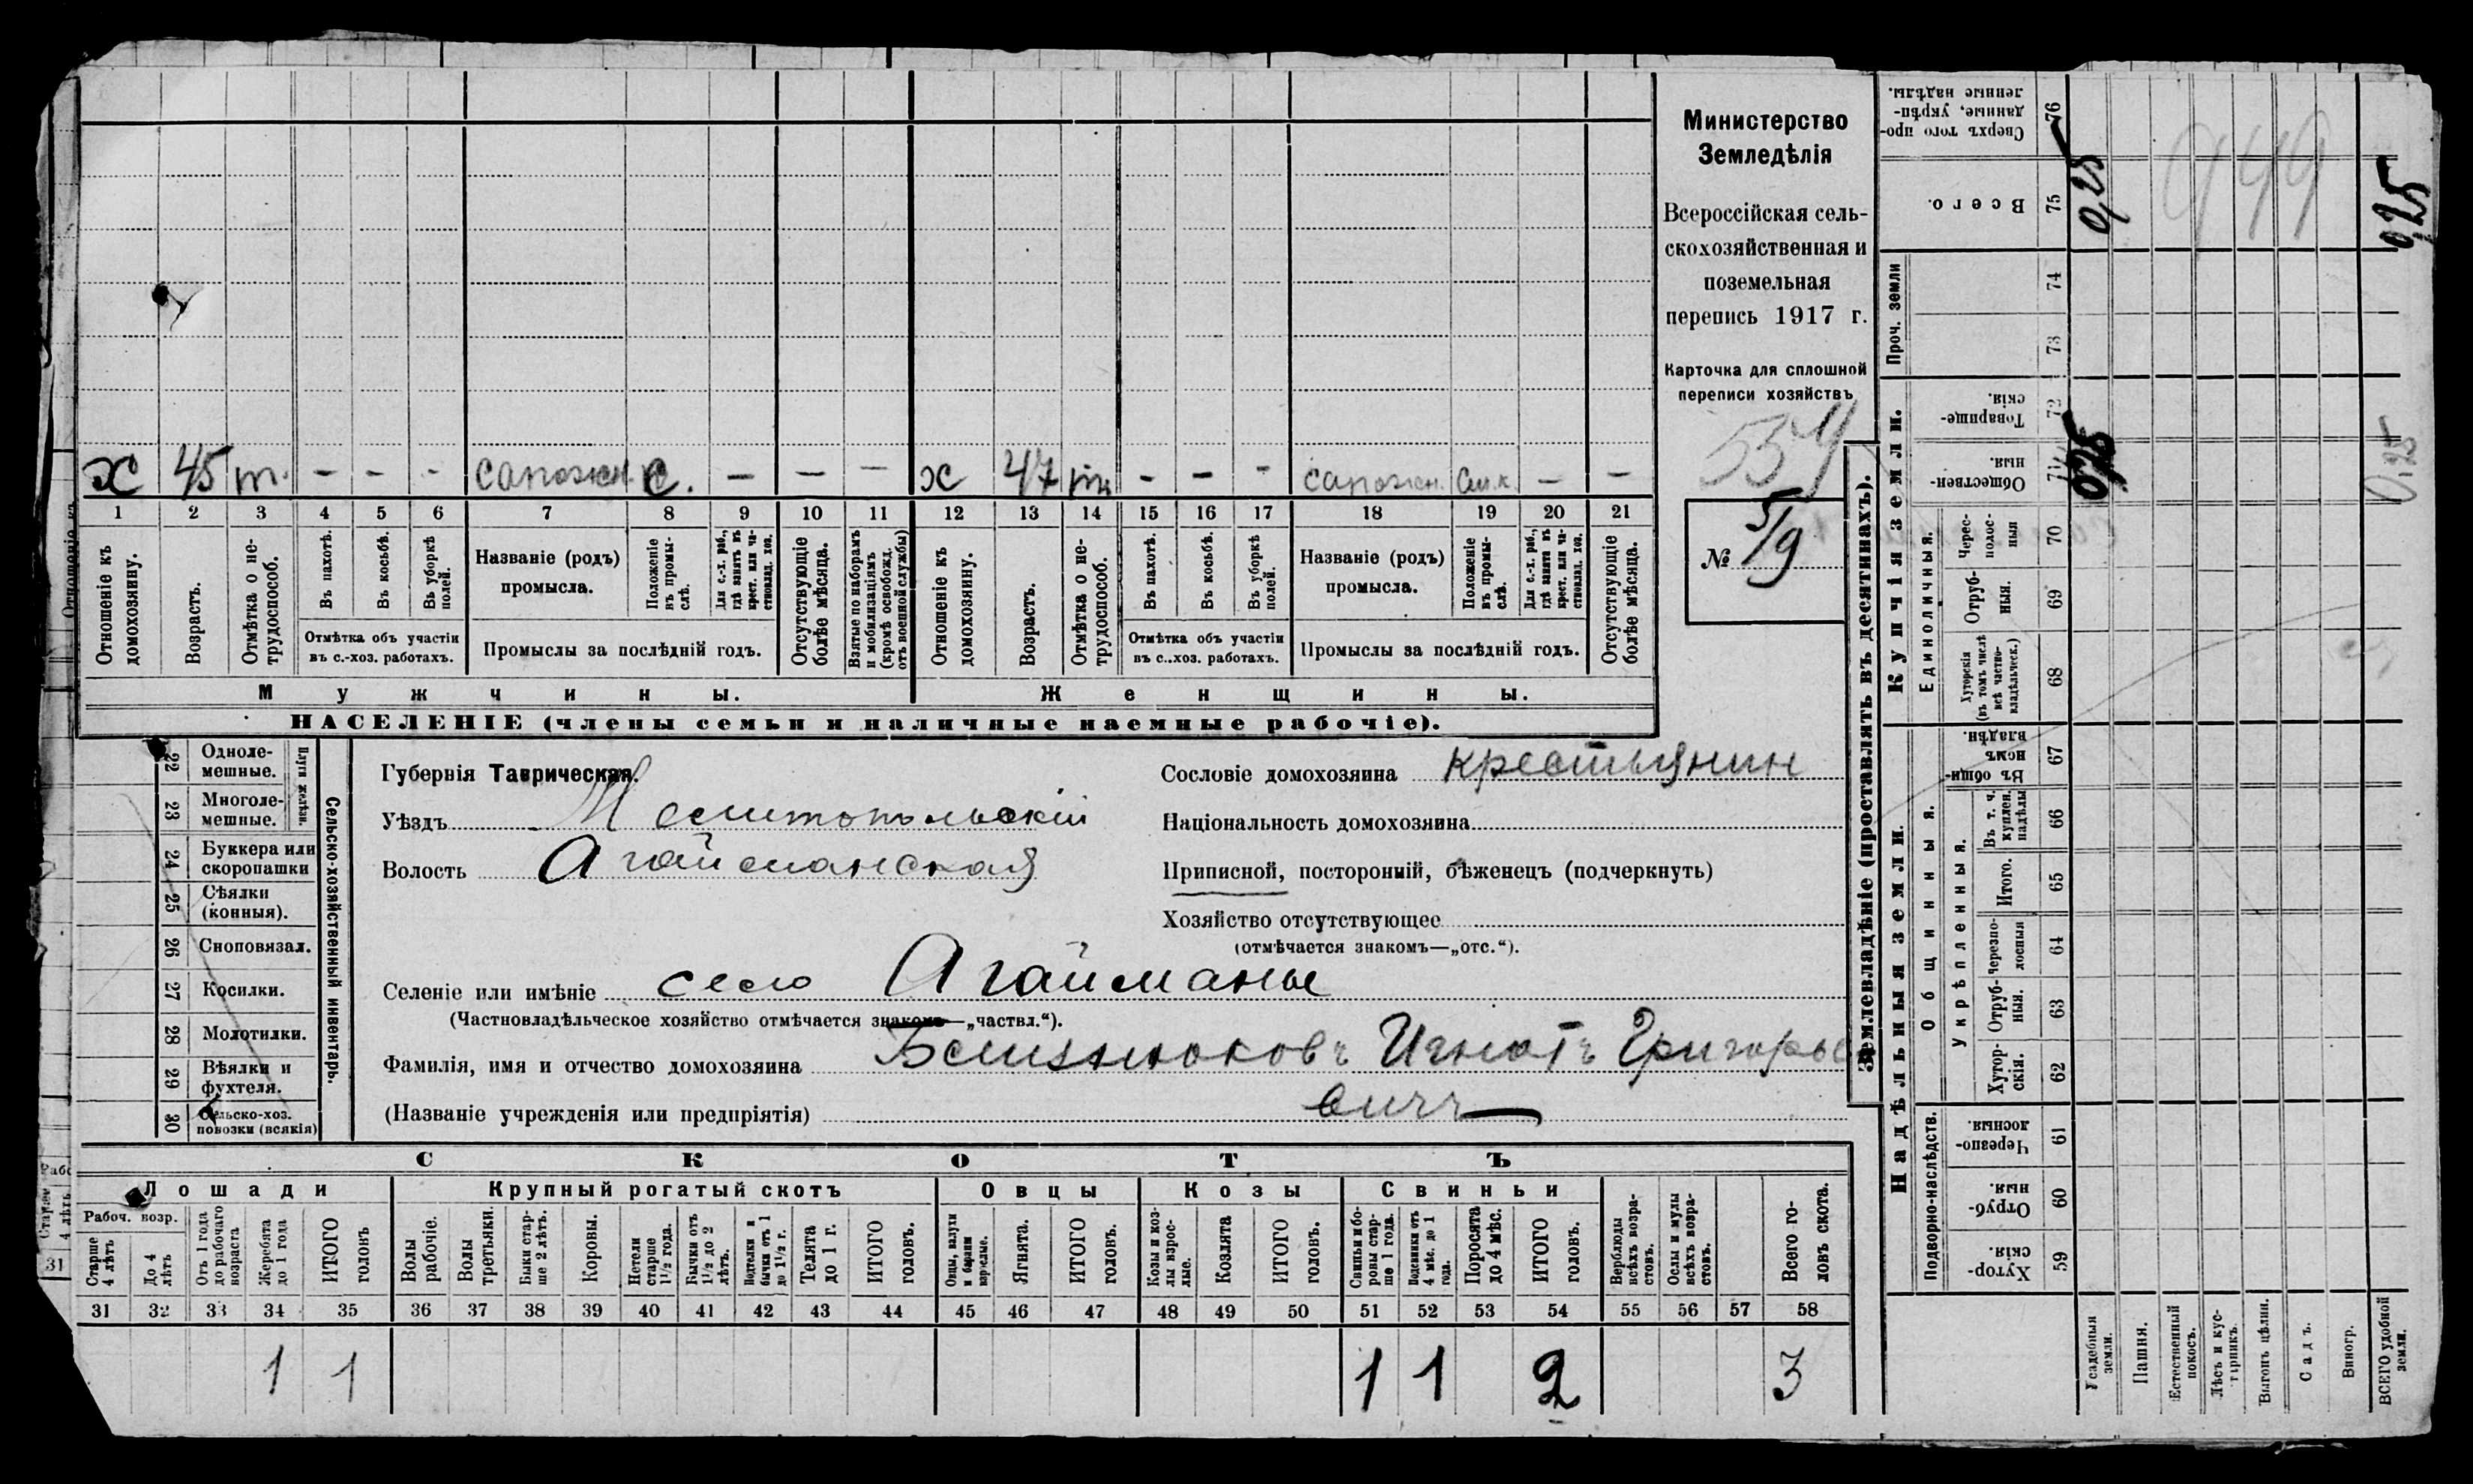 Министерство
Земледѣлія
Всероссійская сель-
скохозяйственная и
поземельная
перепись 1917 г.
Карточка для сплошной
переписи хозяйствъ
559
№ 5/9
х 45 т. - - - сапожн. с. - - - х 47 тн - - - сапожн. - -
1 2 3 4 5 6 7 8 9 10 11 12 13 14 15 16 17 18 19 20 21
Отношеніе къ домохозяину.
Возрастъ.
Отмѣтка о не-трудоспособ.
Въ пахотѣ.
Въ косьбѣ.
Въ уборкѣ полей.
Отмѣтка объ участіи
въ с.-хоз. работахъ.
Названіе (родъ)
промысла.
Положеніе въ промы-слѣ.
Для с.-х. раб., гдѣ занятъ въ крест. или ча-ствовлад. хоз.
Промыслы за послѣдній годъ.
Отсутствующіе болѣе мѣсяца.
Взятые по наборамъ и мобилизаціямъ (кромѣ освобожд. отъ военной службы)
Отношеніе къ домохозяину.
Возрастъ.
Отмѣтка о не-трудоспособ.
Въ пахотѣ.
Въ косьбѣ.
Въ уборкѣ полей.
Отмѣтка объ участіи
въ с..хоз. работахъ.
Названіе (родъ)
промысла.
Положеніе въ промы-слѣ.
Для с.-х. раб., гдѣ занята въ крест. или ча-ствовлад. хоз.
Промыслы за послѣдній годъ.
Отсутствующіе болѣе мѣсяца.
Мужчины.
Женщины.
НАСЕЛЕНІЕ (члены семьи и наличные наемные рабочіе).
Сельско-хозяйственный инвентарь.
Плуги желѣзн.
22 Одноле-мешные.
23 Многоле-мешные.
24 Буккера или скоропашки
25 Сѣялки (конныя).
26 Сноповязал.
27 Косилки.
28 Молотилки.
29 Вѣялки и фухтеля.
30 Сельско-хоз. повозки (всякія)
Губернія Таврическая.
Уѣздъ Мелитопольскій
Волость Агайманская
Сословіе домохозяина крестьянин
Національность домохозяина
Приписной, посторонній, бѣженецъ (подчеркнуть)
Хозяйство отсутствующее
(отмѣчается знакомъ—„отс.“).
Селеніе или имѣніе село Агайманы
(Частновладѣльческое хозяйство отмѣчается знакомъ—„частвл.“).
Фамилія, имя и отчество домохозяина Игнатъ Григорье
(Названіе учрежденія или предпріятія) вичъ
СКОТЪ
Лошади
Крупный рогатый скотъ
Овцы
Козы
Свиньи
Рабоч. возр.
Старше 4 лѣтъ
До 4 лѣтъ
Отъ 1 года до рабочаго возраста
Жеребята до 1 года
ИТОГО головъ
Волы рабочіе.
Волы третьяки.
Быки стар-ше 2 лѣтъ.
Коровы.
Нетели старше 1½ года.
Бычки отъ 1½ до 2 лѣтъ.
Подтелки и бычки отъ 1 до 1½ г.
Телята до 1 г.
ИТОГО головъ.
Овцы, валухи и бараны взрослые.
Ягнята.
ИТОГО головъ.
Козы и коз-лы взрос-лые.
Козлята
ИТОГО головъ.
Свиньи и бо-ровы стар-ше 1 года.
Подсвинки отъ 4 мѣс. до 1 года.
Поросята до 4 мѣс.
ИТОГО головъ.
Верблюды всѣхъ возра-стовъ.
Ослы и мулы всѣхъ возра-стовъ.
Всего го-ловъ скота.
31 32 33 34 35 36 37 38 39 40 41 42 43 44 45 46 47 48 49 50 51 52 53 54 55 56 57 58
1 1 1 1 2 3
Землевладѣніе (проставлять въ десятинахъ).
Купчія земли.
Надѣльныя земли.
Сверхъ того про-данные, укрѣп-ленные надѣлы. 76
Всего. 75
Проч. земли 74 73
Товарище-скія. 72
Обществен-ныя. 71
Единоличныя.
Черес-полос-ныя 70
Отруб-ныя. 69
Хуторскія (въ томъ числѣ всѣ частно-владѣльческ.) 68
Общинныя.
Въ общи-номъ владѣн. 67
Укрѣпленныя.
Въ т. ч. куплен. надѣлы 66
Итого. 65
Черезпо-лосныя 64
Отруб-ныя. 63
Хутор-скія. 62
Подворно-наслѣдств.
Черезпо-лосныя. 61
Отруб-ныя. 60
Хутор-скія. 59
Усадебныя земли.
Пашня.
Естественный покосъ.
Лѣсъ и кус-тарникъ.
Выгонъ цѣлин.
Садъ.
Виногр.
ВСЕГО удобной земли.
0,25
949
0,25
0,25
0,25